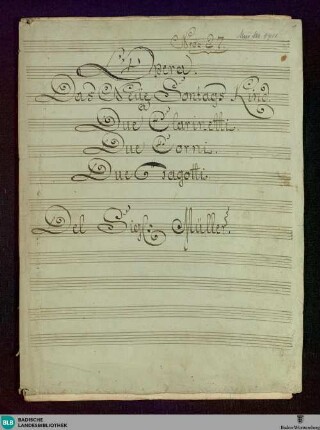 Opera.
Das Neue Sontags Kind.
a
Due Clarinetti.
Due Corni.
Due Fagotti.
Del Sigre. Müller.
BLB BADISCHE
LANDESBIBLIOTHEK
Baden-Württemberg